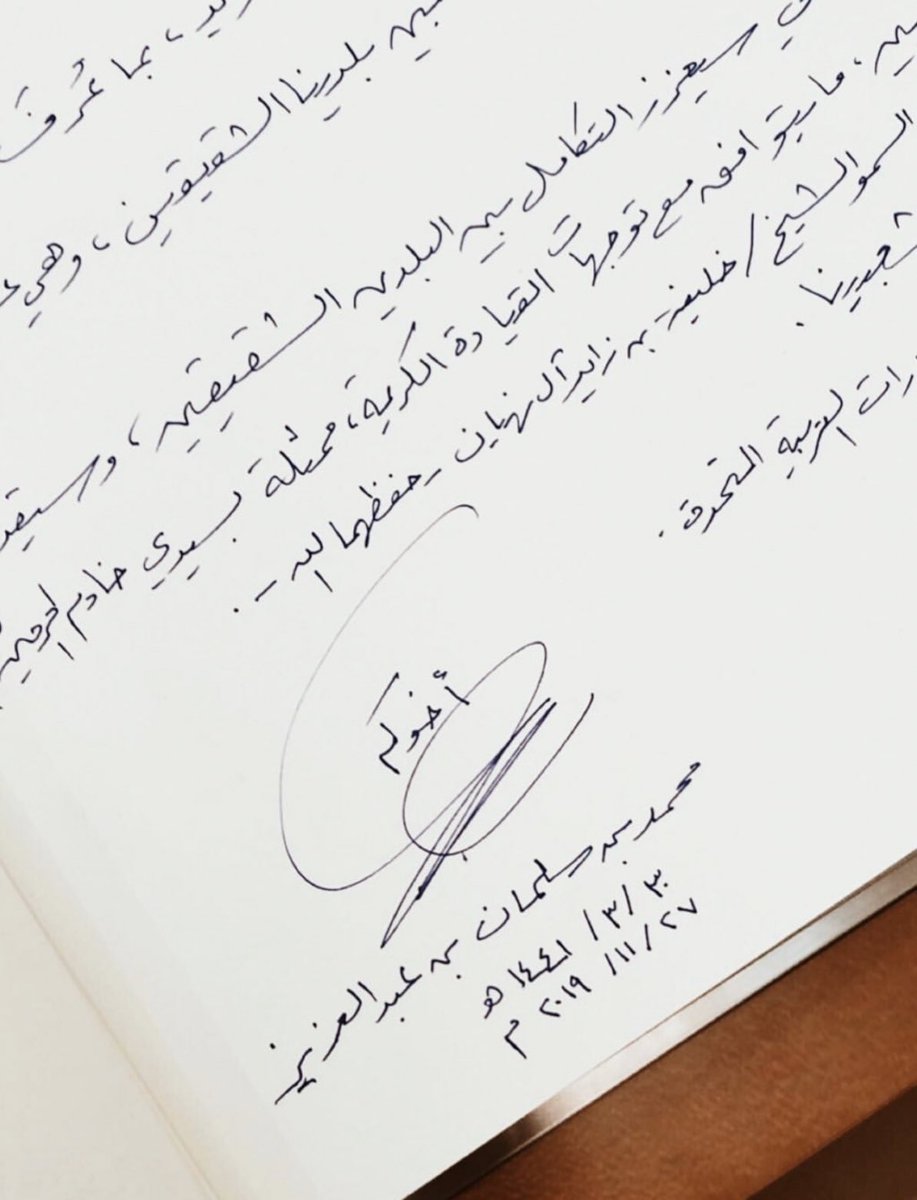 بما عُرف
بين بلدينا الشقيقين، وهي
سيعزز التكامل بين البلدين الشقيقين،
ما يتوافق مع توجهات القيادة الكريمة، ممثلة بسيدي خادم الحرمين
السمو الشيخ/ خليفة بن زايد آل نهيان - حفظهما الله -.
شعبينا.
العربية المتحدة.
أخوكم
محمد بن سلمان بن عبدالعزيز
٣٠ / ٣ / ١٤٤١ هـ
٢٧ / ١١ / ٢٠١٩ م